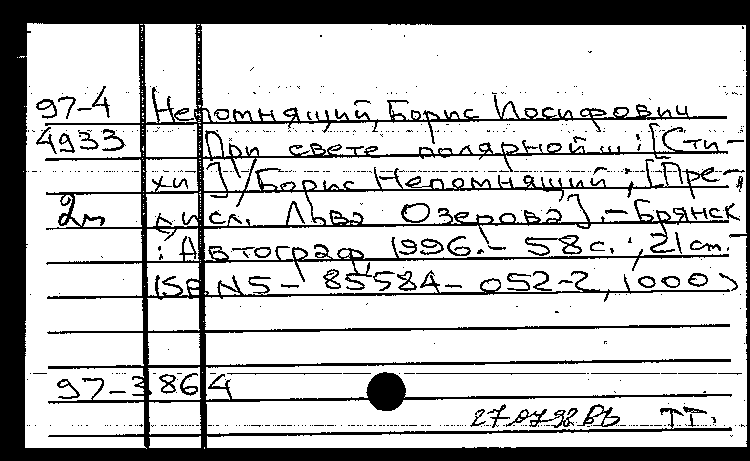 97-4 Непомнящий, Борис Иосифович
4933 При свете полярной ... : [Сти-
хи] / Борис Непомнящий ; [Пре-
2м дисл. Льва Озерова]. - Брянск
: Автограф, 1996. - 58 с. ; 21 см. -
ISBN 5-85584-052-2, 1000)
97-3864
27.07.98 ВЬ ТТ.